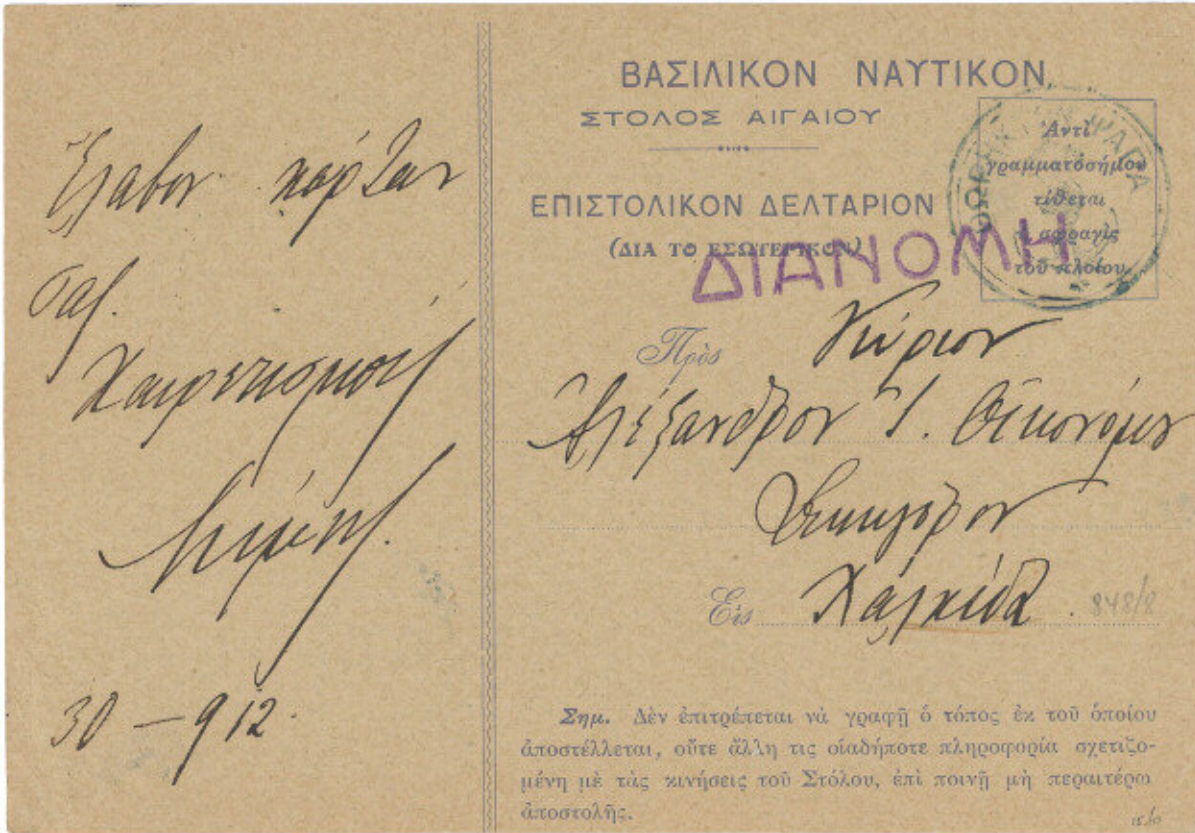 Ἔλαβον κάρταν
σας.
Χαιρετισμούς
30 – 9 12.
ΒΑΣΙΛΙΚΟΝ ΝΑΥΤΙΚΟΝ
ΣΤΟΛΟΣ ΑΙΓΑΙΟΥ
ΕΠΙΣΤΟΛΙΚΟΝ ΔΕΛΤΑΡΙΟΝ
(ΔΙΑ ΤΟ ΕΣΩΤΕΡΙΚΟΝ)
Ἀντὶ
γραμματοσήμου
τίθεται
ἡ σφραγὶς
τοῦ πλοίου.
ΘΩΡΗΚΤΟΝ ΨΑΡΑ
ΔΙΑΝΟΜΗ
Πρὸς Κύριον
Ἀλέξανδρον Ἰ. Οἰκονόμου
Δικηγόρον
Εἰς Χαλκίδα
848/8
Σημ. Δὲν ἐπιτρέπεται νὰ γραφῇ ὁ τόπος ἐκ τοῦ ὁποίου
ἀποστέλλεται, οὔτε ἄλλη τις οἱαδήποτε πληροφορία σχετιζο-
μένη μὲ τὰς κινήσεις τοῦ Στόλου, ἐπὶ ποινῇ μὴ περαιτέρω
ἀποστολῆς.